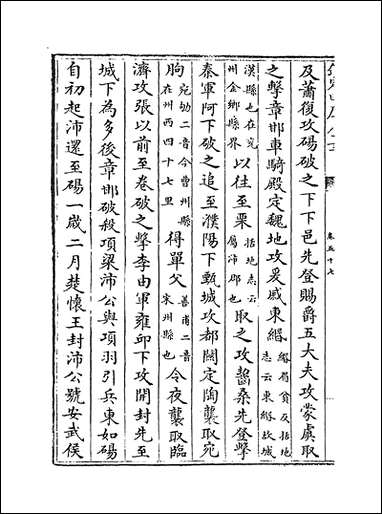 卷五十七
及蕭復攻碭破之下下邑先登賜爵五大夫攻蒙虞取
之擊章邯車騎殿定魏地攻爰戚東緡緡眉貧反括地志云東緡故城
漢縣也在兖州金鄉縣界以往至栗括地志云屬沛郡也取之攻齧桑先登擊
秦軍阿下破之追至濮陽下甄城攻都關定陶襲取宛
朐宛劬二音今曹州縣在州西四十七里得單父善甫二音宋州縣也令夜襲取臨
濟攻張以前至卷破之擊李由軍雍邱下攻開封先至
城下為多後章邯破殺項梁沛公與項羽引兵東如碭
自初起沛還至碭一歲二月楚懷王封沛公號安武侯